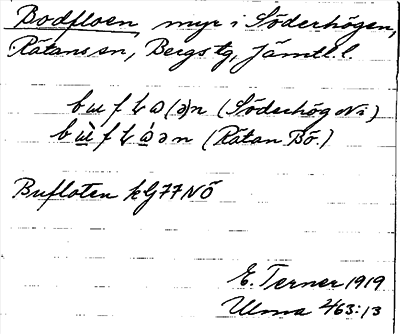 Bodfloen, myr i Söderhögen,
Rätans sn, Bergs tg, Jämtl. l.
(Söderhög Ni)
(Rätan Bö.)
Bufloten kG 77 NÖ
E. Terner 1919
Ulma 263:13